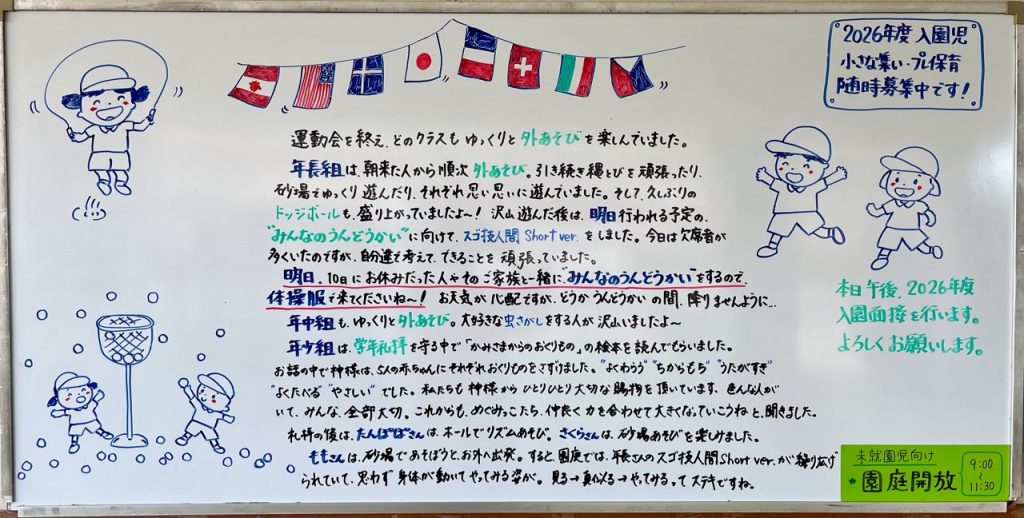 2026年度 入園児
小さな集い・プレ保育
随時募集中です！
運動会を終え、どのクラスもゆっくりと外あそびを楽しんでいました。
年長組は、朝来た人から順次 外あそび。引き続き縄とびを頑張ったり、
砂場でゆっくり遊んだり、それぞれ思い思いに遊んでいました。そして、久しぶりの
ドッジボールも、盛り上がっていましたよ～！ 沢山遊んだ後は、明日行われる予定の、
“みんなのうんどうかい”に向けて、スゴ技人間 Short ver. をしました。今日は欠席者が
多くいたのですが、自分達で考えて、できることを頑張っていました。
明日、10日にお休みだった人やそのご家族と一緒に“みんなのうんどうかい”をするので、
体操服で来てくださいね～！ お天気が心配ですが、どうか うんどうかいの間、降りませんように…
年中組も、ゆっくりと外あそび。大好きな虫さがしをする人が沢山いましたよ～
年少組は、学年礼拝を守る中で「かみさまからのおくりもの」の絵本を読んでもらいました。
お話の中で神様は、5人の赤ちゃんにそれぞれおくりものをさずけました。“よくわらう”“ちからもち”“うたがすき”
“よくたべる”“やさしい”でした。私たちも神様からひとりひとり大切な賜物を頂いています。色んな人が
いて、みんな、全部大切。これからも、めぐみっこたち、仲良く力を合わせて大きくなっていこうねと、聞きました。
礼拝の後は、たんぽぽさんは、ホールでリズムあそび。さくらさんは、砂場あそびを楽しみました。
ももさんは、砂場であそぼうと、お外へ出発。すると、園庭では、年長さんのスゴ技人間Short ver.が繰り広げ
られていて、思わず 身体が動いてやってみる姿が。見る→真似る→やってみるってステキですね。
本日午後、2026年度
入園面接を行います。
よろしくお願いします。
未就園児向け
★園庭開放
9:00
～
11:30